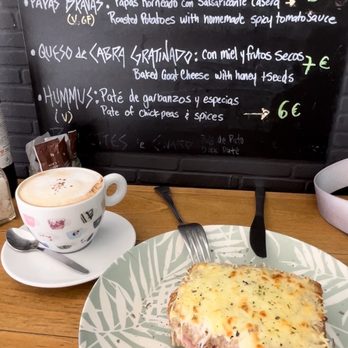 PAPAS BRAVAS: Papas horneado con Salsa Picante Casera
(V, GF) Roasted Potatoes with homemade spicy tomato sauce
• QUESO de CABRA GRATINADO: con miel y frutos secos
Baked Goat Cheese with honey + seeds 7€
• HUMMUS: Paté de garbanzos y especias
(V) Pate of Chickpeas & spices → 6€
Paté de Pato
Duck Paté